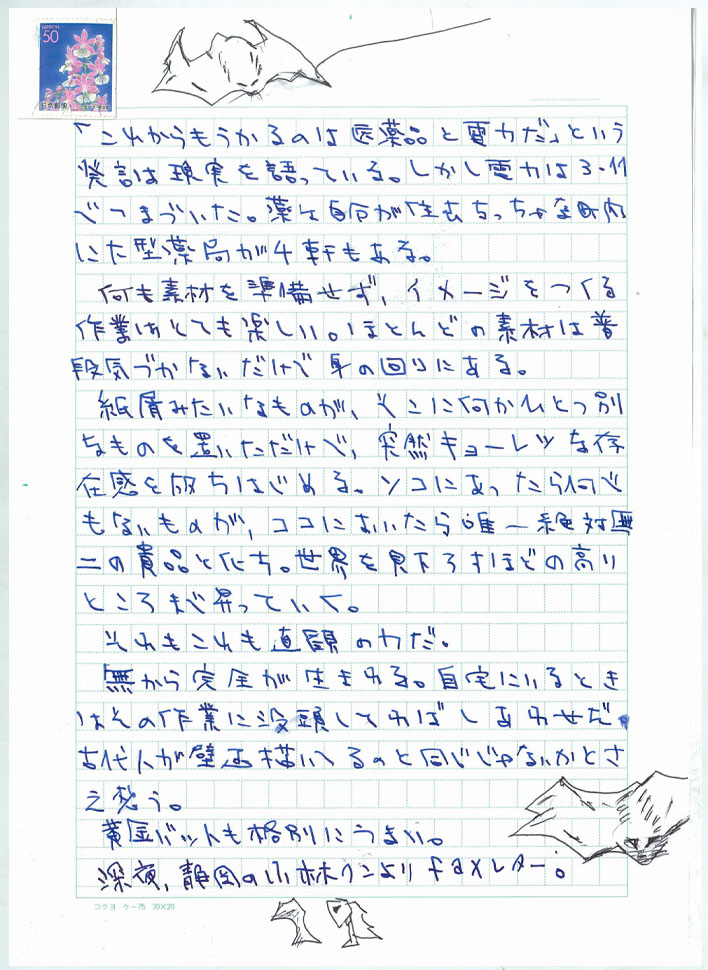 NIPPON
50
日本郵便
「これからもうかるのは医薬品と電力だ」という
発言は現実を語っている。しかし電力は3・11
でつまづいた。薬は自分が住むちっちゃな町内
に大型薬局が4軒もある。
何も素材を準備せず、イメージをつくる
作業はとても楽しい。ほとんどの素材は普
段気づかないだけで身の回りにある。
紙屑みたいなものが、そこに何かひとつ別
なものを置いただけで、突然キョーレツな存
在感を放ちはじめる。ソコにあったら何で
もないものが、ココにおいたら唯一絶対無
二の貴品と化ち。世界を見下ろすほどの高い
ところまで昇っていく。
それもこれも直観の力だ。
無から完全が生まれる。自宅にいるとき
はその作業に没頭してればしあわせだ。
古代人が壁画描いてるのと同じじゃないかとさ
え想う。
黄金バットも格別にうまい。
深夜、静岡の小林クンよりfaxレター。
コクヨ ケー75 20×20